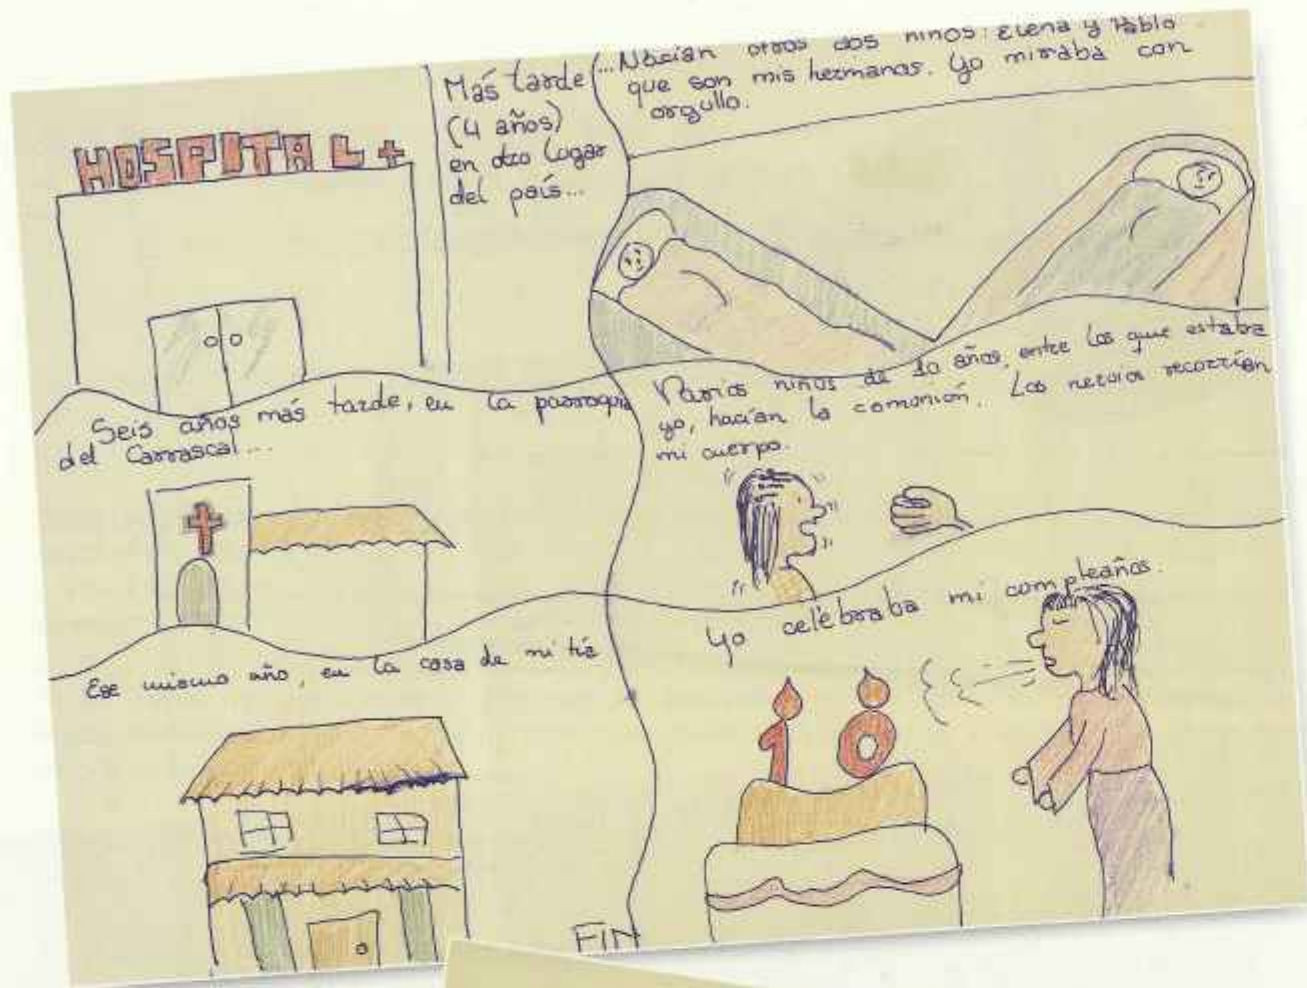 HOSPITAL +
Más tarde
(4 años)
en otro lugar
del país...
...Nacían otros dos niños: Elena y Pablo
que son mis hermanos. Yo miraba con
orgullo.
Seis años más tarde, en la parroquia
del Carrascal...
Varios niños de 10 años, entre los que estaba
yo, hacían la comunión. Los nervios recorrían
mi cuerpo.
Ese mismo año, en la casa de mi tía
Yo celebraba mi compleaños.
10
FIN